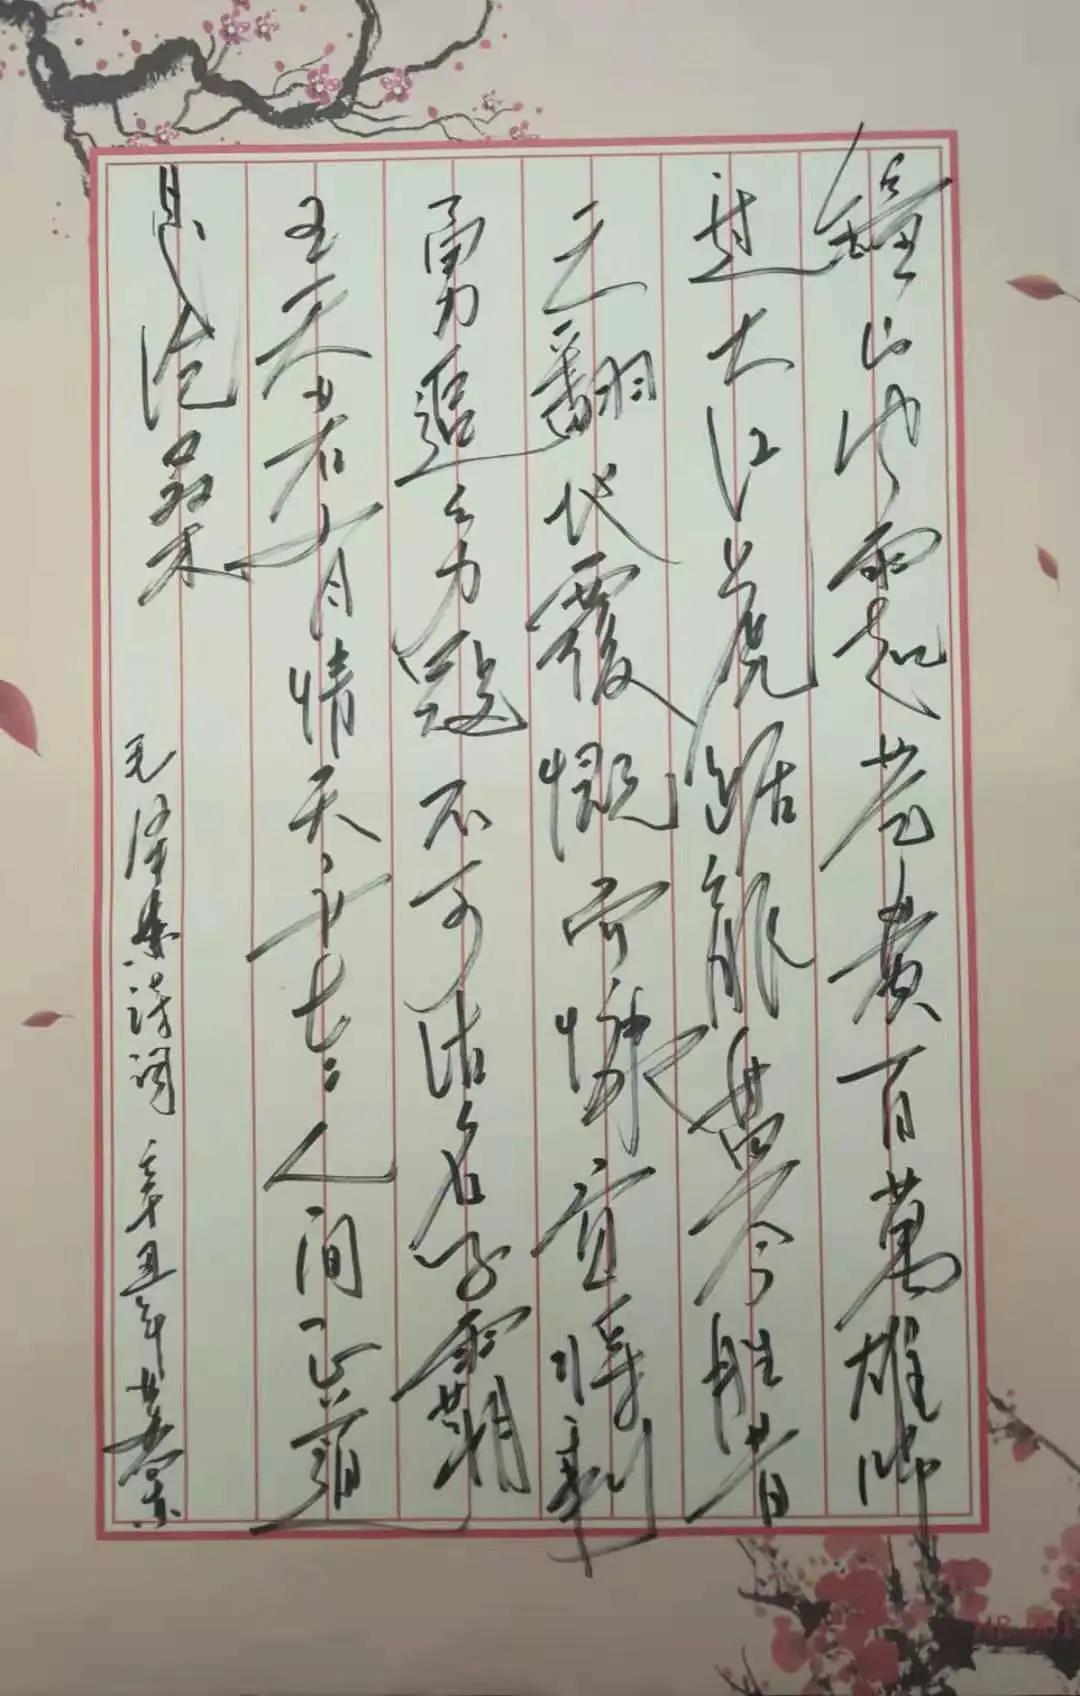 鐘山风雨起苍黄百萬雄师
过大江虎踞龍盘今胜昔
天翻地覆慨而慷宜将剩
勇追穷寇不可沽名学霸
王天若有情天亦老人间正道
是沧桑 毛泽东诗词 辛丑年